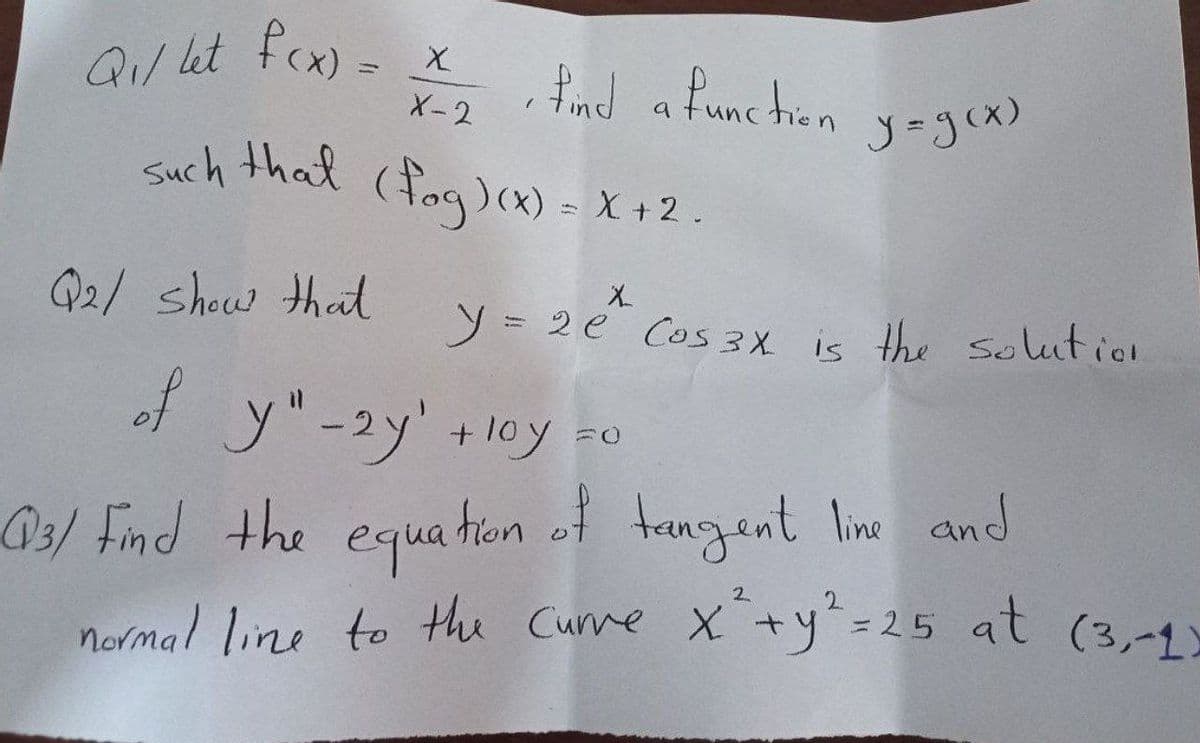 Q1/ let f(x) = x/(x-2) , find a function y=g(x)
such that (fog)(x) = x+2.
Q2/ show that y = 2e^x Cos3x is the solution
of y" -2y' +10y =0
Q3/ Find the equation of tangent line and
normal line to the Curve x²+y²=25 at (3,-1)